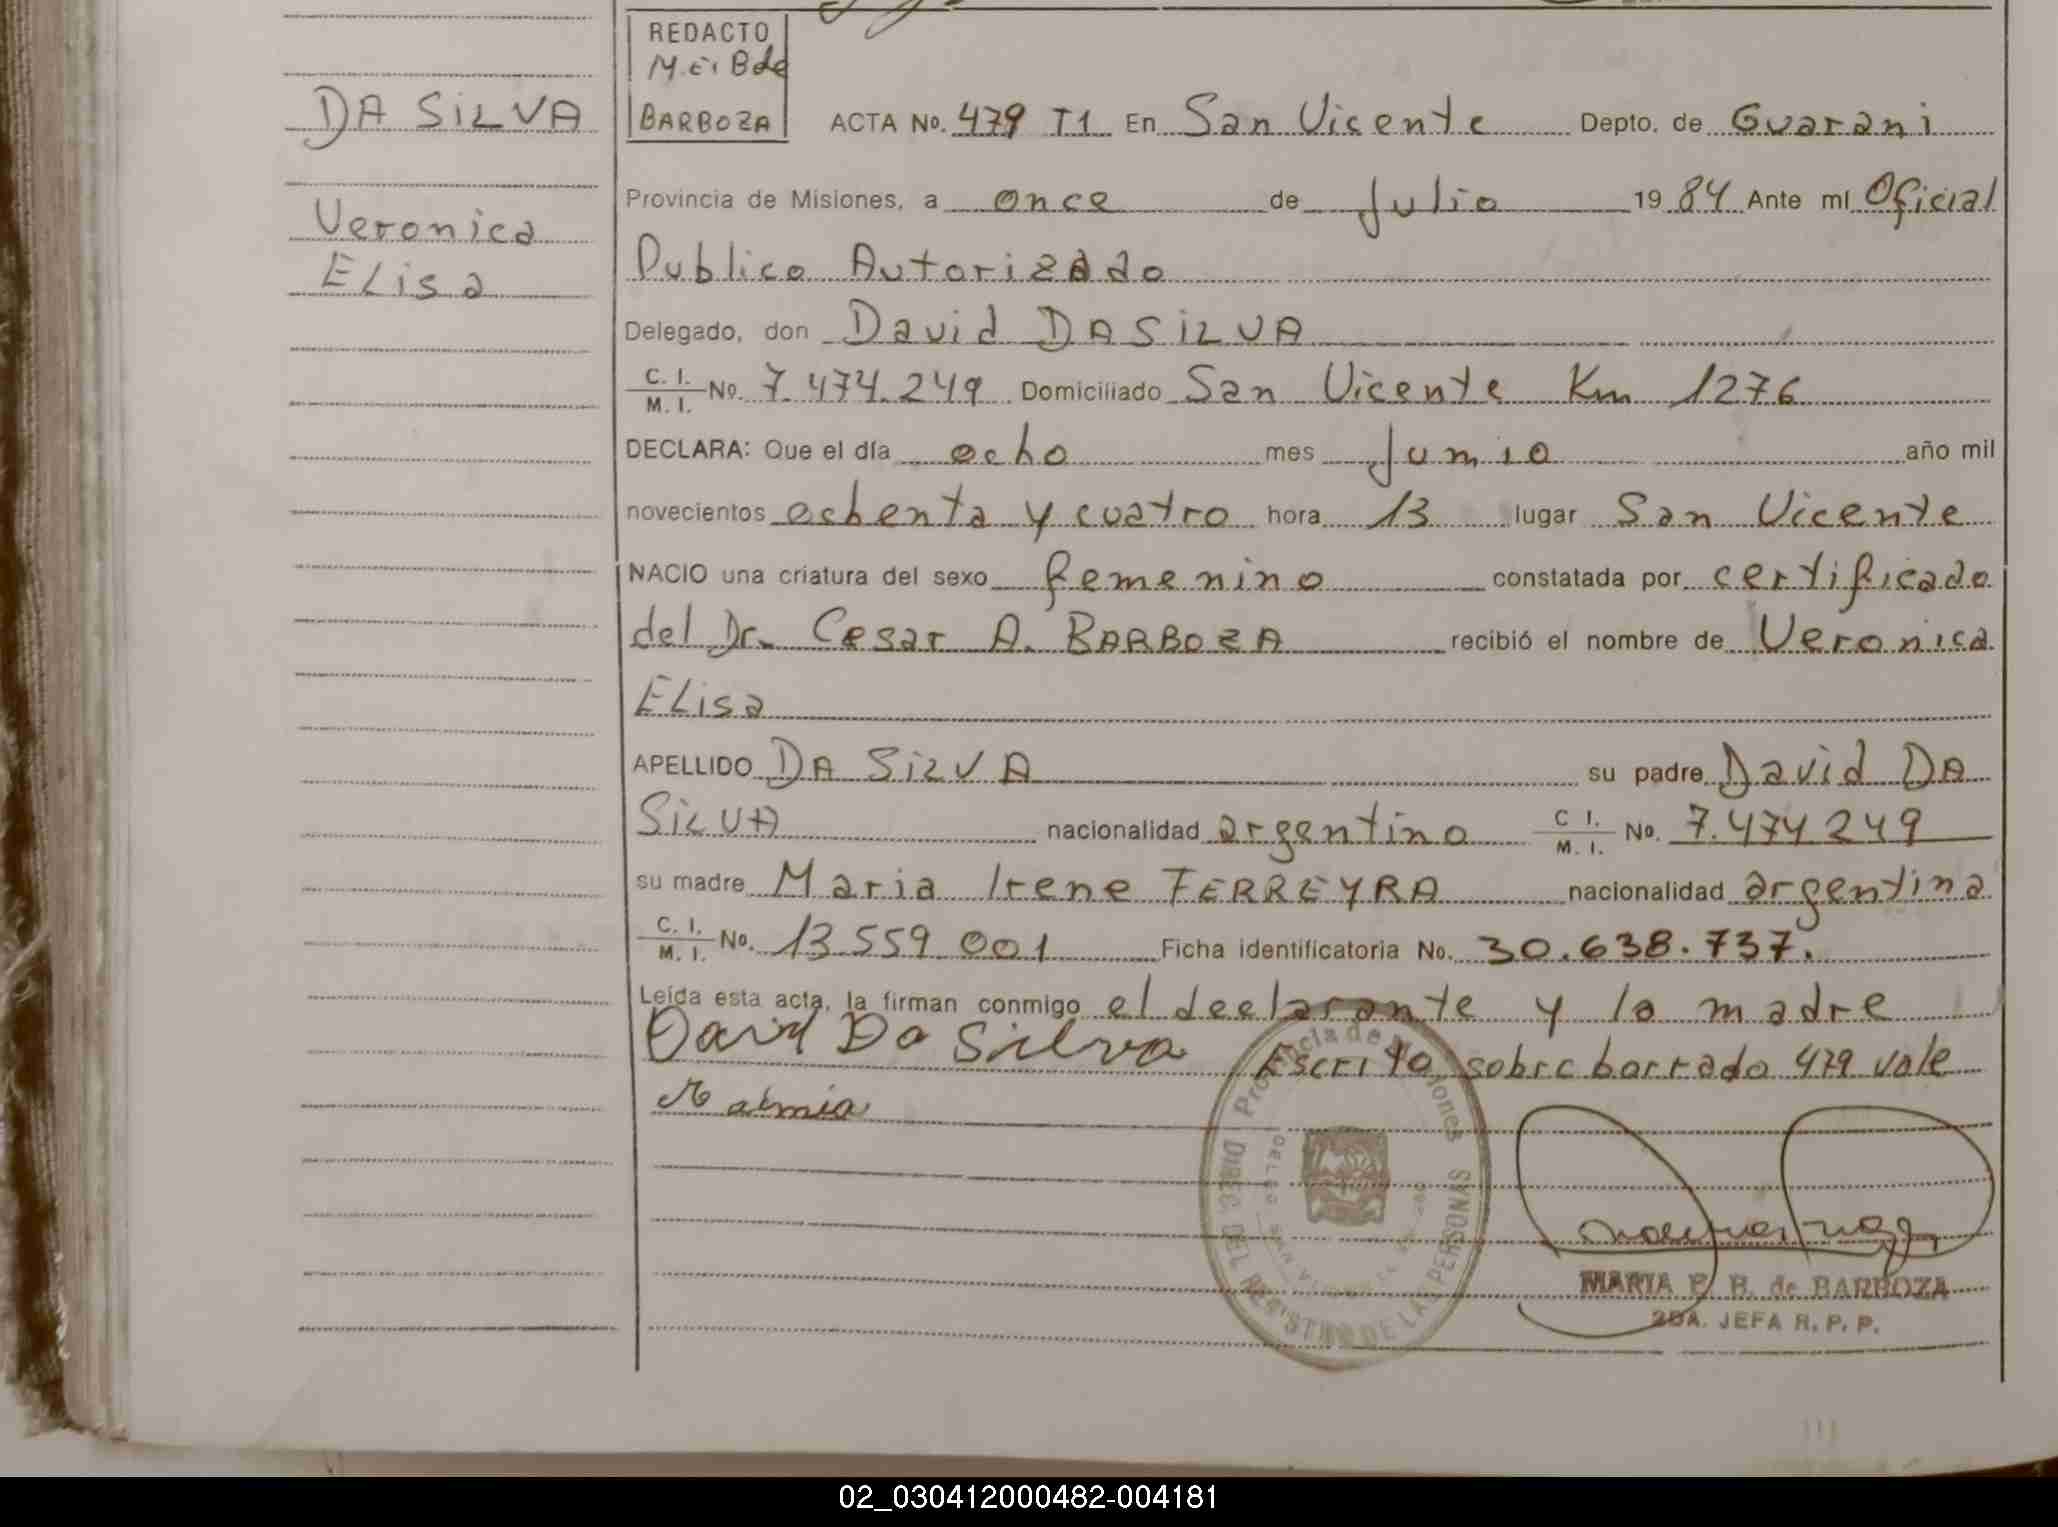 DA SILVA
Veronica
Elisa
REDACTO
M.E.B de
BARBOZA
ACTA No. 479 T1 En San Vicente Depto. de Guarani
Provincia de Misiones, a once de Julio 19 84 Ante mi Oficial
Publico Autorizado
Delegado, don David DA SILVA
C. I. / M. I. No. 7.474.249 Domiciliado San Vicente Km 1276
DECLARA: Que el día ocho mes Junio año mil
novecientos ochenta y cuatro hora 13 lugar San Vicente
NACIO una criatura del sexo femenino constatada por certificado
del Dr. Cesar A. BARBOZA recibió el nombre de Veronica
Elisa
APELLIDO DA SILVA su padre David DA
SILVA nacionalidad argentino C I. / M. I. No. 7.474249
su madre Maria Irene FERREYRA nacionalidad argentina
C. I. / M. I. No. 13.559.001 Ficha identificatoria No. 30.638.737.
Leída esta acta, la firman conmigo el declarante y la madre
David Da Silva Escrito sobre borrado 479 vale
Provincia de Misiones
DIREC. DEL REGISTRO DE LAS PERSONAS
MARIA E. B. de BARBOZA
2DA. JEFA R. P. P.
02_030412000482-004181